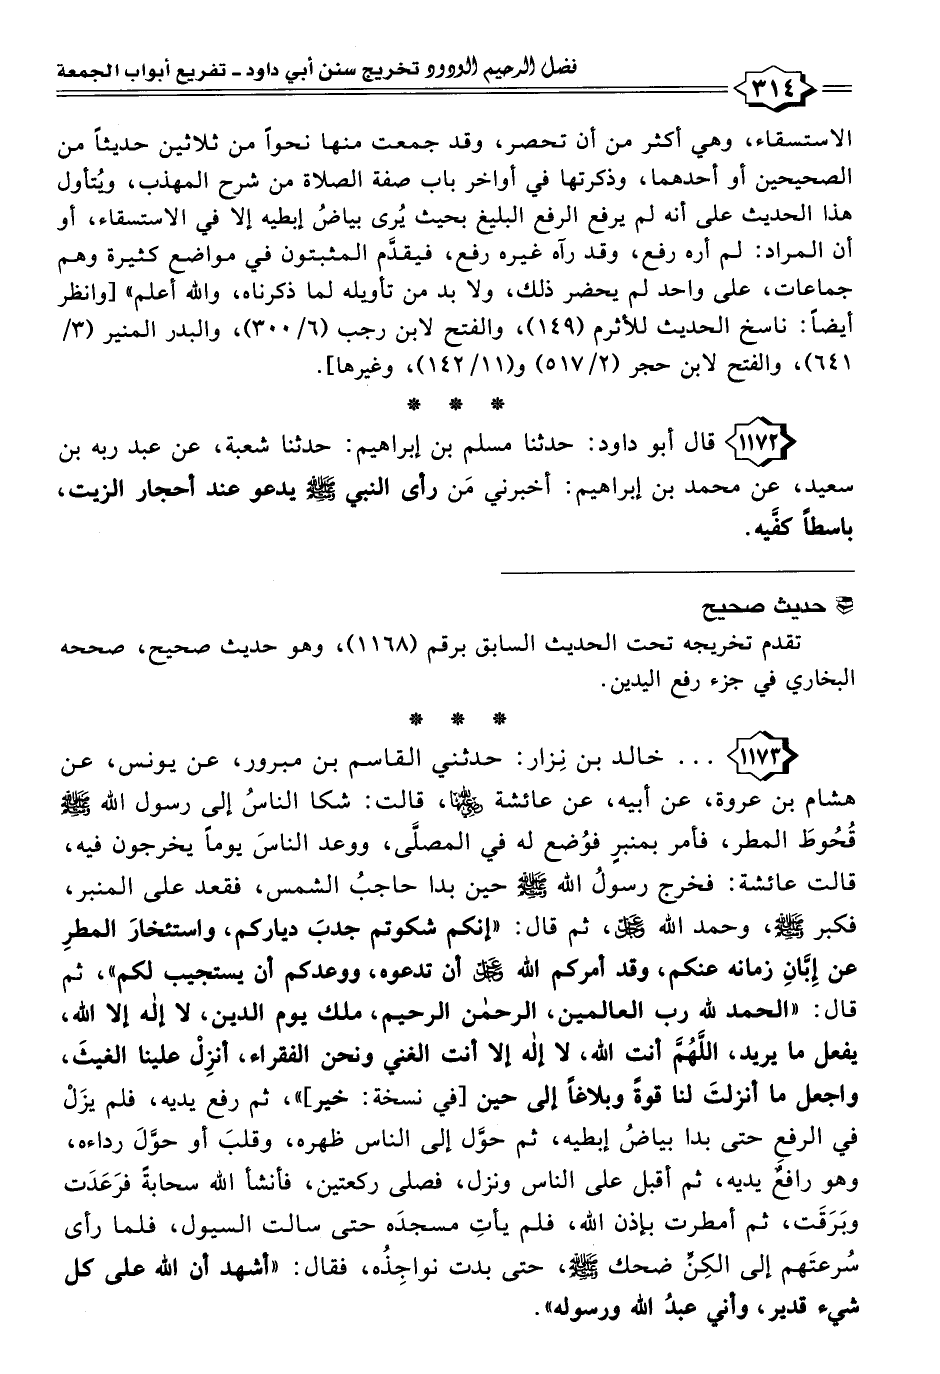 ٣١٤ فضل الرحيم الودود تخريج سنن أبي داود ـ تفريع أبواب الجمعة
الاستسقاء، وهي أكثر من أن تحصر، وقد جمعت منها نحواً من ثلاثين حديثاً من
الصحيحين أو أحدهما، وذكرتها في أواخر باب صفة الصلاة من شرح المهذب، ويُتأول
هذا الحديث على أنه لم يرفع الرفع البليغ بحيث يُرى بياضُ إبطيه إلا في الاستسقاء، أو
أن المراد: لم أره رفع، وقد رآه غيره رفع، فيقدَّم المثبتون في مواضع كثيرة وهم
جماعات، على واحد لم يحضر ذلك، ولا بد من تأويله لما ذكرناه، والله أعلم» [وانظر
أيضاً: ناسخ الحديث للأثرم (١٤٩)، والفتح لابن رجب (٦/ ٣٠٠)، والبدر المنير (٣/
٦٤١)، والفتح لابن حجر (٢/ ٥١٧) و(١١/ ١٤٢)، وغيرها].
* * *
١١٧٢ قال أبو داود: حدثنا مسلم بن إبراهيم: حدثنا شعبة، عن عبد ربه بن
سعيد، عن محمد بن إبراهيم: أخبرني مَن رأى النبي ﷺ يدعو عند أحجار الزيت،
باسطاً كفَّيه.
حديث صحيح
تقدم تخريجه تحت الحديث السابق برقم (١١٦٨)، وهو حديث صحيح، صححه
البخاري في جزء رفع اليدين.
* * *
١١٧٣ ... خالد بن نِزار: حدثني القاسم بن مبرور، عن يونس، عن
هشام بن عروة، عن أبيه، عن عائشة رضي الله عنها، قالت: شكا الناسُ إلى رسول الله ﷺ
قُحُوطَ المطر، فأمر بمنبرٍ فوُضع له في المصلَّى، ووعد الناسَ يوماً يخرجون فيه،
قالت عائشة: فخرج رسولُ الله ﷺ حين بدا حاجبُ الشمس، فقعد على المنبر،
فكبر ﷺ، وحمد الله عز وجل، ثم قال: «إنكم شكوتم جدبَ دياركم، واستئخارَ المطرِ
عن إبَّانِ زمانه عنكم، وقد أمركم الله عز وجل أن تدعوه، ووعدكم أن يستجيب لكم»، ثم
قال: «الحمد لله رب العالمين، الرحمٰن الرحيم، ملك يوم الدين، لا إلٰه إلا الله،
يفعل ما يريد، اللَّهُمَّ أنت الله، لا إلٰه إلا أنت الغني ونحن الفقراء، أنزِلْ علينا الغيثَ،
واجعل ما أنزلتَ لنا قوةً وبلاغاً إلى حين [في نسخة: خير]»، ثم رفع يديه، فلم يزَلْ
في الرفع حتى بدا بياضُ إبطيه، ثم حوَّل إلى الناس ظهره، وقلبَ أو حوَّلَ رداءه،
وهو رافعٌ يديه، ثم أقبل على الناس ونزل، فصلى ركعتين، فأنشأ الله سحابةً فرَعَدَت
وبَرَقَت، ثم أمطرت بإذن الله، فلم يأتِ مسجدَه حتى سالت السيول، فلما رأى
سُرعتَهم إلى الكِنِّ ضحك ﷺ، حتى بدت نواجِذُه، فقال: «أشهد أن الله على كل
شيء قدير، وأني عبدُ الله ورسوله».